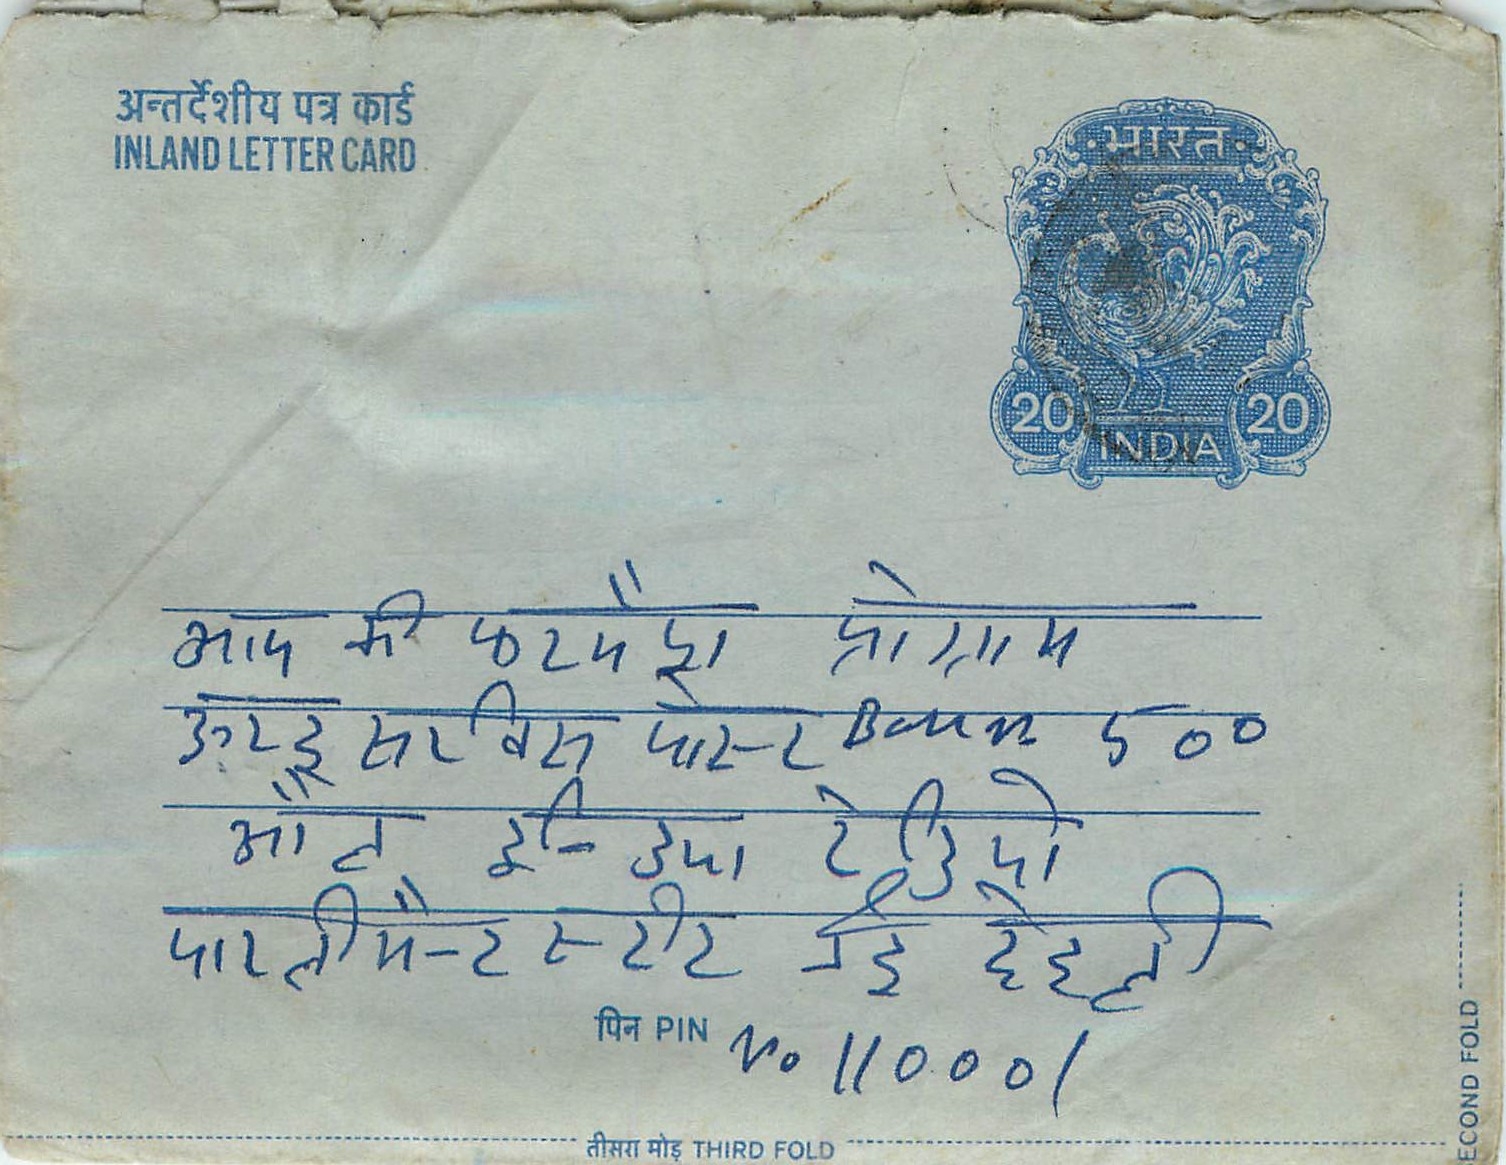 अन्तर्देशीय पत्र कार्ड
INLAND LETTER CARD
भारत
20 20
INDIA
आप की फरमैइश प्रोग्राम
ऊरदू सरविस पोस्ट 500
ऑल इन्डिया रेडियो
पारलीमैन्ट स्टरीट नई देहली
पिन PIN No 110001
तीसरा मोड़ THIRD FOLD
ECOND FOLD